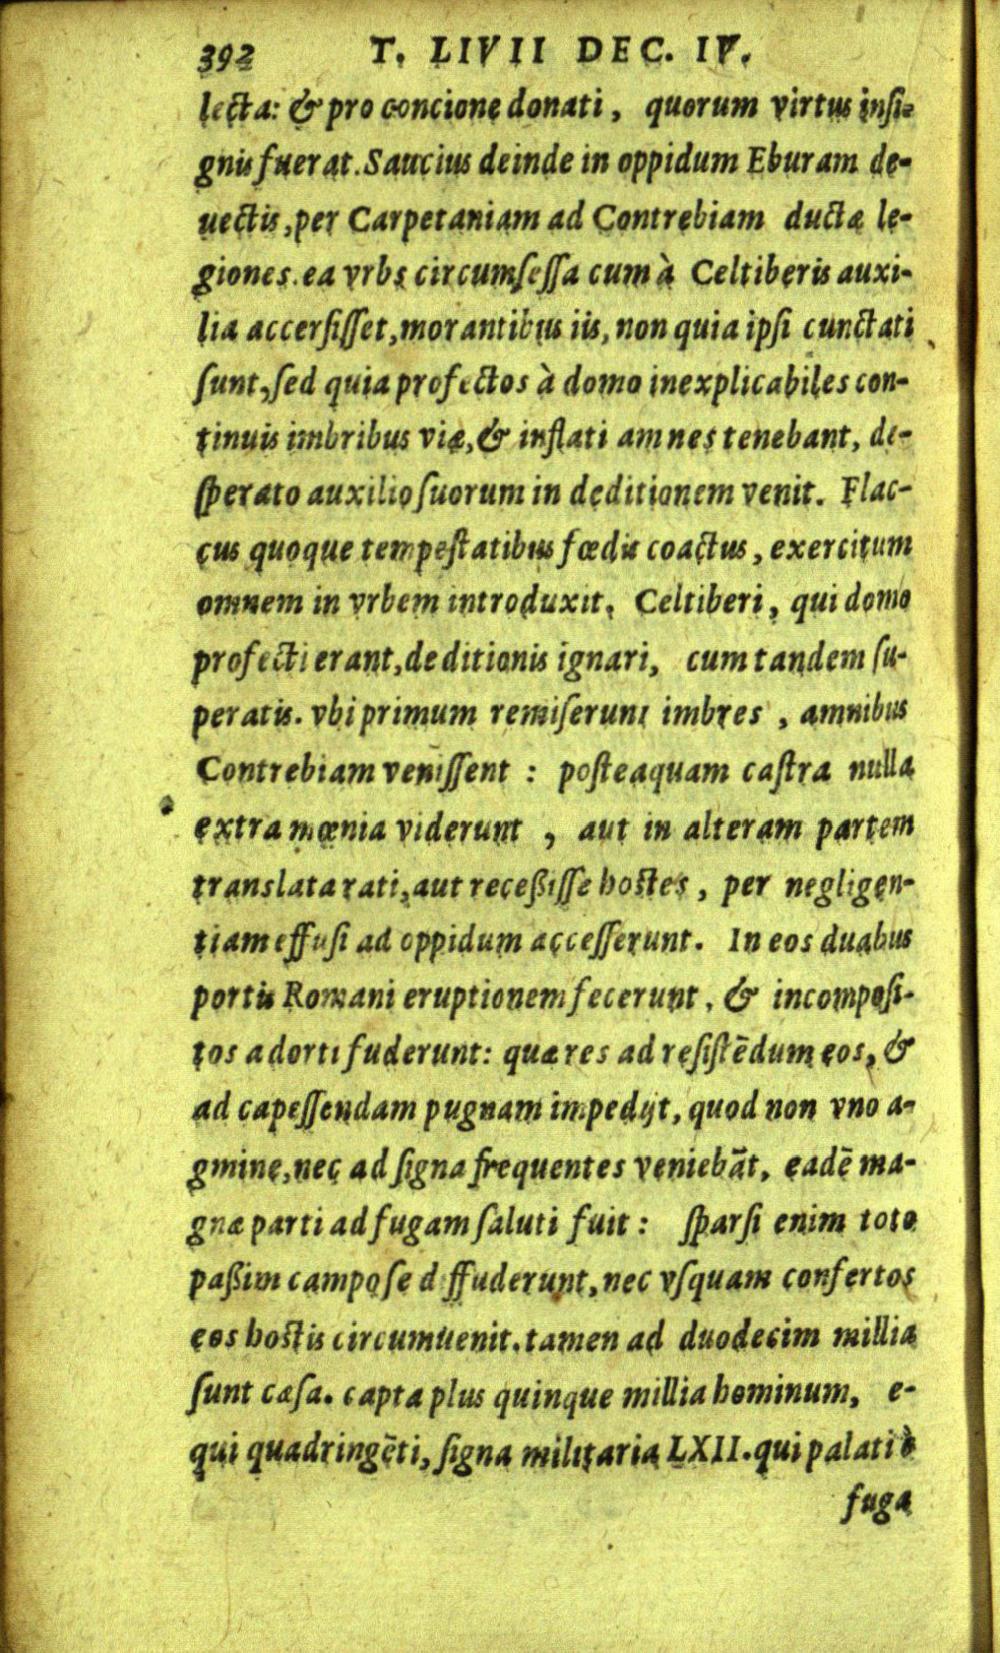 392 T. LIVII DEC. IV.
lecta: & pro concione donati, quorum virtus insi-
gnis fuerat. Saucius deinde in oppidum Eburam de-
uectis, per Carpetaniam ad Contrebiam ductæ le-
giones. ea vrbs circumſeſſa cum à Celtiberis auxi-
lia accerſiſſet, morantibus iis, non quia ipſi cunctati
ſunt, ſed quia profectos à domo inexplicabiles con-
tinuis imbribus viæ, & inflati amnes tenebant, de-
ſperato auxilio ſuorum in deditionem venit. Flac-
cus quoque tempeſtatibus fœdis coactus, exercitum
omnem in vrbem introduxit. Celtiberi, qui domo
profecti erant, deditionis ignari, cum tandem ſu-
peratis. vbi primum remiſerunt imbres, amnibus
Contrebiam veniſſent : poſteaquam caſtra nulla
extra mœnia viderunt, aut in alteram partem
translata rati, aut receßiſſe hoſtes, per negligen-
tiam effuſi ad oppidum acceſſerunt. In eos duabus
portis Romani eruptionem fecerunt, & incompoſi-
tos adorti fuderunt: quæ res ad reſiſtēdum eos, &
ad capeſſendam pugnam impedijt, quod non vno a-
gmine, nec ad ſigna frequentes veniebāt, eadē ma-
gnæ parti ad fugam ſaluti fuit : ſparſi enim toto
paßim campo ſe diffuderunt, nec vſquam confertos
eos hoſtis circumuenit. tamen ad duodecim millia
ſunt cæſa. capta plus quinque millia hominum, e-
qui quadringēti, ſigna militaria LXII. qui palati è
fuga